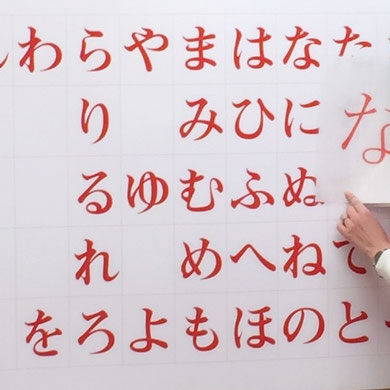 たてと
な
なにぬねの
はひふへほ
まみむめも
やゆよ
らりるれろ
わを